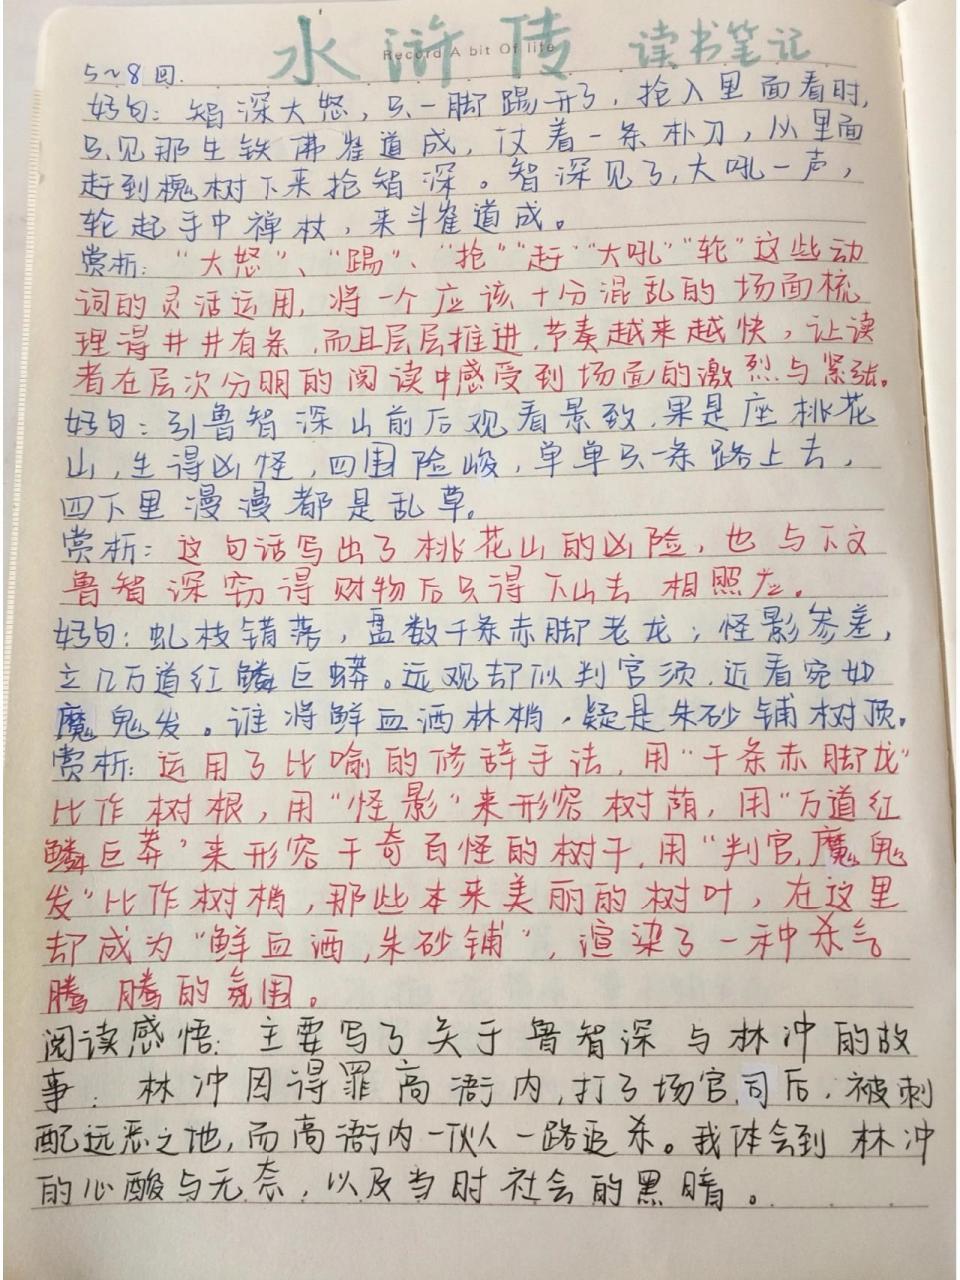 水浒传 读书笔记
Record A bit Of life
5~8回.
好句：智深大怒，只一脚踢开了，抢入里面看时，
只见那生铁佛崔道成，仗着一条朴刀，从里面
赶到槐树下来抢智深。智深见了，大吼一声，
轮起手中禅杖，来斗崔道成。
赏析：“大怒”、“踢”、“抢”“赶”“大吼”“轮”这些动
词的灵活运用，将一个应该十分混乱的场面梳
理得井井有条，而且层层推进，节奏越来越快，让读
者在层次分明的阅读中感受到场面的激烈与紧张。
好句：引鲁智深山前后观看景致，果是座桃花
山，生得凶怪，四围险峻，单单只一条路上去，
四下里漫漫都是乱草。
赏析：这句话写出了桃花山的凶险，也与下文
鲁智深窃得财物后只得下山去相照应。
好句：虬枝错落，盘数千条赤脚老龙；怪影参差，
立几万道红鳞巨蟒。远观却似判官须，近看宛如
魔鬼发。谁将鲜血洒林梢，疑是朱砂铺树顶。
赏析：运用了比喻的修辞手法，用“千条赤脚龙”
比作树根，用“怪影”来形容树荫，用“万道红
鳞巨莽”来形容千奇百怪的树干，用“判官，魔鬼
发”比作树梢，那些本来美丽的树叶，在这里
却成为“鲜血洒，朱砂铺”，渲染了一种杀气
腾腾的氛围。
阅读感悟：主要写了关于鲁智深与林冲的故
事．林冲因得罪高衙内，打了场官司后，被刺
配远恶之地，而高衙内一伙人一路追杀。我体会到林冲
的心酸与无奈，以及当时社会的黑暗。